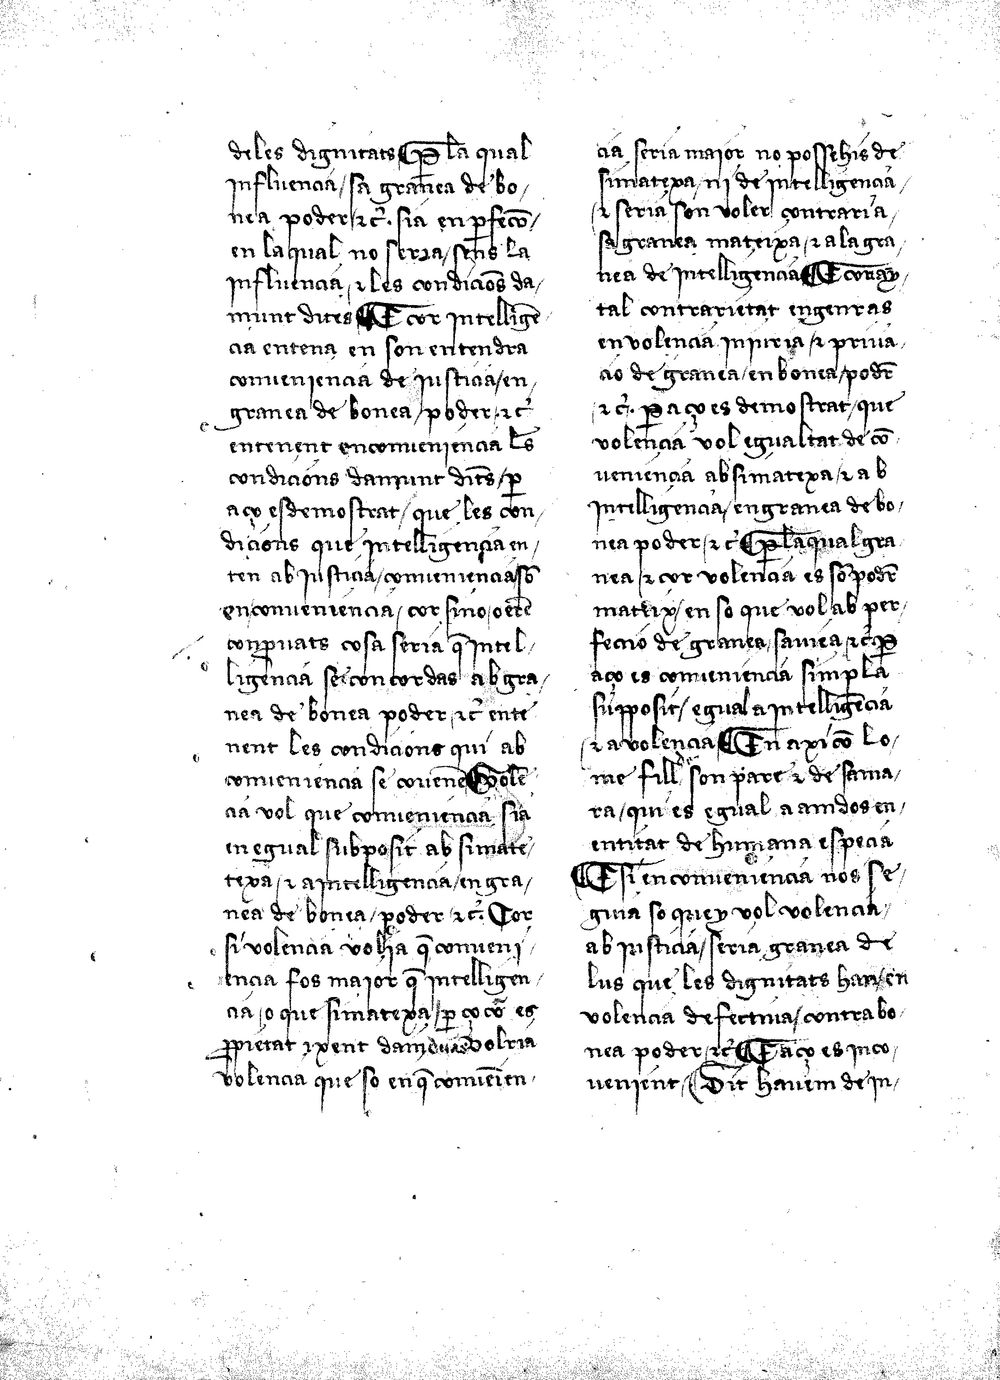 deles dignitats ¶ P̲ la qual
influencia / sa granea de bo-
nea poder / ⁊ c̃. sia en ꝑfecō /
en la qual no serza / sens la
influencia / ⁊ les condiciōs da-
munt dites ¶ E cor intelligē-
cia entena en son entendra
conueniencia de justicia / en /
granea de bonea / poder / ⁊ c̃
entenent enconueniencia les
condicions damunt dites / ꝑ
aço es demostrat / que les con /
dicions que intelligencia en /
ten ab justicia / conueniencia sō
en conueniencia / cor sino / o
conꝑuats cosa seria q̄ intel-
ligencia se concordas ab gra /
nea de bonea poder ⁊ c̃ ente
nent les condicions qui ab
conueniencia se couenē ¶ Volē
cia vol que conueniencia sia
en egual subposit ab simate-
texa / ⁊ a intelligencia / en gra /
nea de bonea / poder ⁊ c̃. Cor
si volencia volia q̄ conueni /
encia fos maior q̄ intelligen /
cia / o que simatexa / ꝑ ço cō es
ꝓpietat ixent volria
volencia que so en q̄ conueīen-
cia seria maior no possehis de
simatexa / ni de intelligencia /
⁊ seria son voler contraria /
sa granea mateixa / ⁊ a la gra /
nea de intelligencia ¶ E
tal contrarietat engenras
en volencia injuria / ⁊ priua /
cio de granea / en bonea / podr̄
⁊ c̃. ꝑ aço es demostrat / que
volencia vol egualtat de cō-
ueniencia ab simatexa / ⁊ ab
intelligencia / en granea de bo /
nea poder / ⁊ c̃ ¶ P̲ la qual gra
nea / ⁊ cor volencia es sō podr̄
mateix / en so que vol ab per /
feccio de granea / sauiea / ⁊ c̃ ꝑ
aço es conueniencia simpla
supposit / egual a intelligēcia
⁊ a volencia ¶ En axi cō lo /
me fill son pare ⁊ de sama /
ra / qui es egual a amdos en /
entitat de humana especia
¶ E si enconueniencia nos se /
guia so que y vol volencia /
ab justicia / seria granea de
lus que les dignitats han en
volencia defectiua / contra bo /
nea poder / ⁊ c̃ ¶ E aço es inco /
uenient / Dit hauem de in /